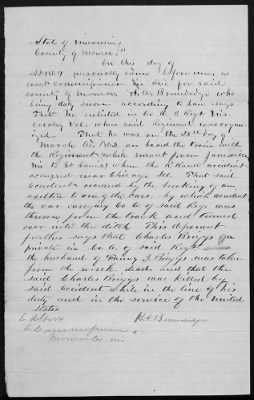 State of Wisconsin
County of Monroe
On this day of
A.D. 1864 personally came before me a
court commissioner in & for said
county of Monroe H. W. Brundidge who
being duly sworn according to law says
That he enlisted in Co. A 3 Regt Wis
cavalry Vols when said regiment was organ
ized That he was on the 28th day of
March A.D. 1862 on board the train with
the Regiment while enroute from Janesville
Wis to St Louis when the R Road accident
occurred near Chicago Ill. That said
accident occurred by the breaking of an
axeltree to one of the cars by which accident
the car carrying Co A of said Regt was
thrown from the track and turned
over into the ditch This deponent
further says that Charles Briggs a
private in Co A of said Regt
the husband of Fanny J. Briggs was taken
from the wreck dead and that the
said Charles Briggs was killed by
said accident while in the line of his
duty and in the service of the United
States
Brundidge
Monroe Co